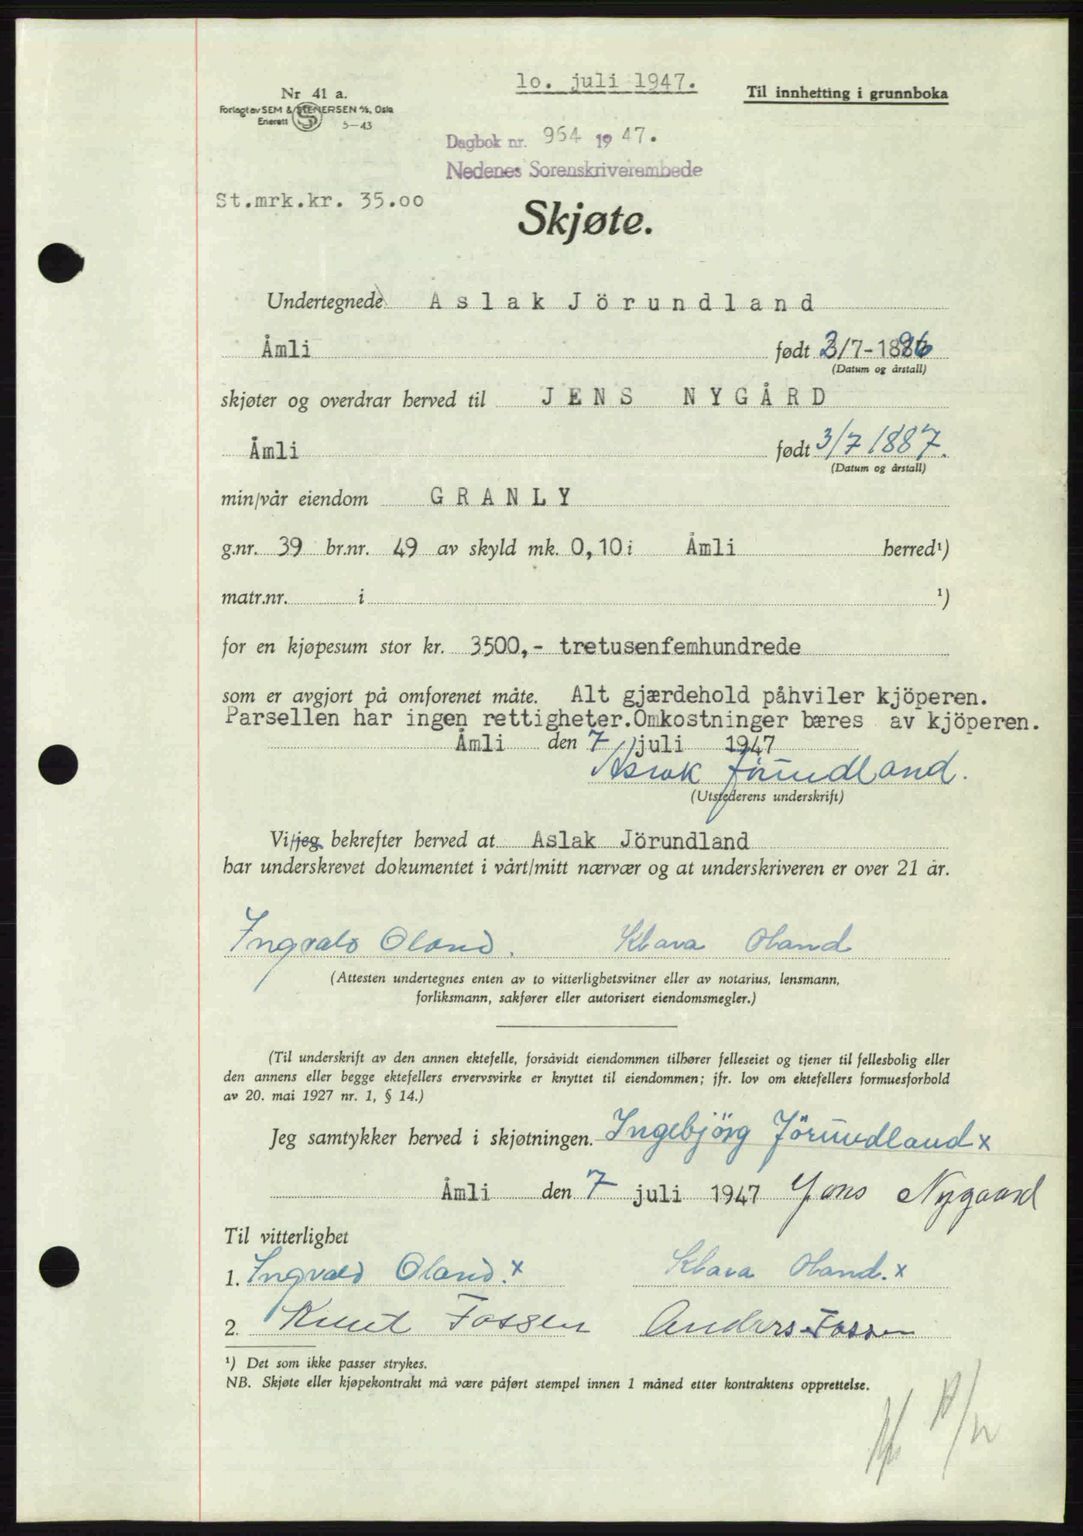 lo. juli 1947.
Til innhefting i grunnboka
Nr 41 a.
Forlagt av SEM & STENERSEN A/S, Oslo
Enerett
5-43
Dagbok nr. 964 1947.
Nedenes Sorenskriverembede
St.mrk.kr. 35.oo
Skjøte.
Undertegnede Aslak Jörundland
Åmli født 2/7-1896
(Datum og årstall)
skjøter og overdrar herved til JENS NYGÅRD
Åmli født 3/7 1887.
(Datum og årstall)
min/vår eiendom GRANLY
g.nr. 39 br.nr. 49 av skyld mk. 0,10 i Åmli herred¹)
matr.nr. i ¹)
for en kjøpesum stor kr. 3500,- tretusenfemhundrede
som er avgjort på omforenet måte. Alt gjærdehold påhviler kjöperen.
Parsellen har ingen rettigheter. Omkostninger bæres av kjöperen.
Åmli den 7 juli 1947
Aslak Jörundland.
(Utstederens underskrift)
Vi/jeg bekrefter herved at Aslak Jörundland
har underskrevet dokumentet i vårt/mitt nærvær og at underskriveren er over 21 år.
Ingvald Oland. Klara Oland
(Attesten undertegnes enten av to vitterlighetsvitner eller av notarius, lensmann,
forliksmann, sakfører eller autorisert eiendomsmegler.)
(Til underskrift av den annen ektefelle, forsåvidt eiendommen tilhører felleseiet og tjener til fellesbolig eller
den annens eller begge ektefellers ervervsvirke er knyttet til eiendommen; jfr. lov om ektefellers formuesforhold
av 20. mai 1927 nr. 1, § 14.)
Jeg samtykker herved i skjøtningen. Ingebjörg Jörundland x
Åmli den 7 juli 1947 Jens Nygaard
Til vitterlighet
1. Ingvald Oland. x Klara Oland. x
2. Knut Fossen Anders Fossen
¹) Det som ikke passer strykes.
NB. Skjøte eller kjøpekontrakt må være påført stempel innen 1 måned etter kontraktens opprettelse.